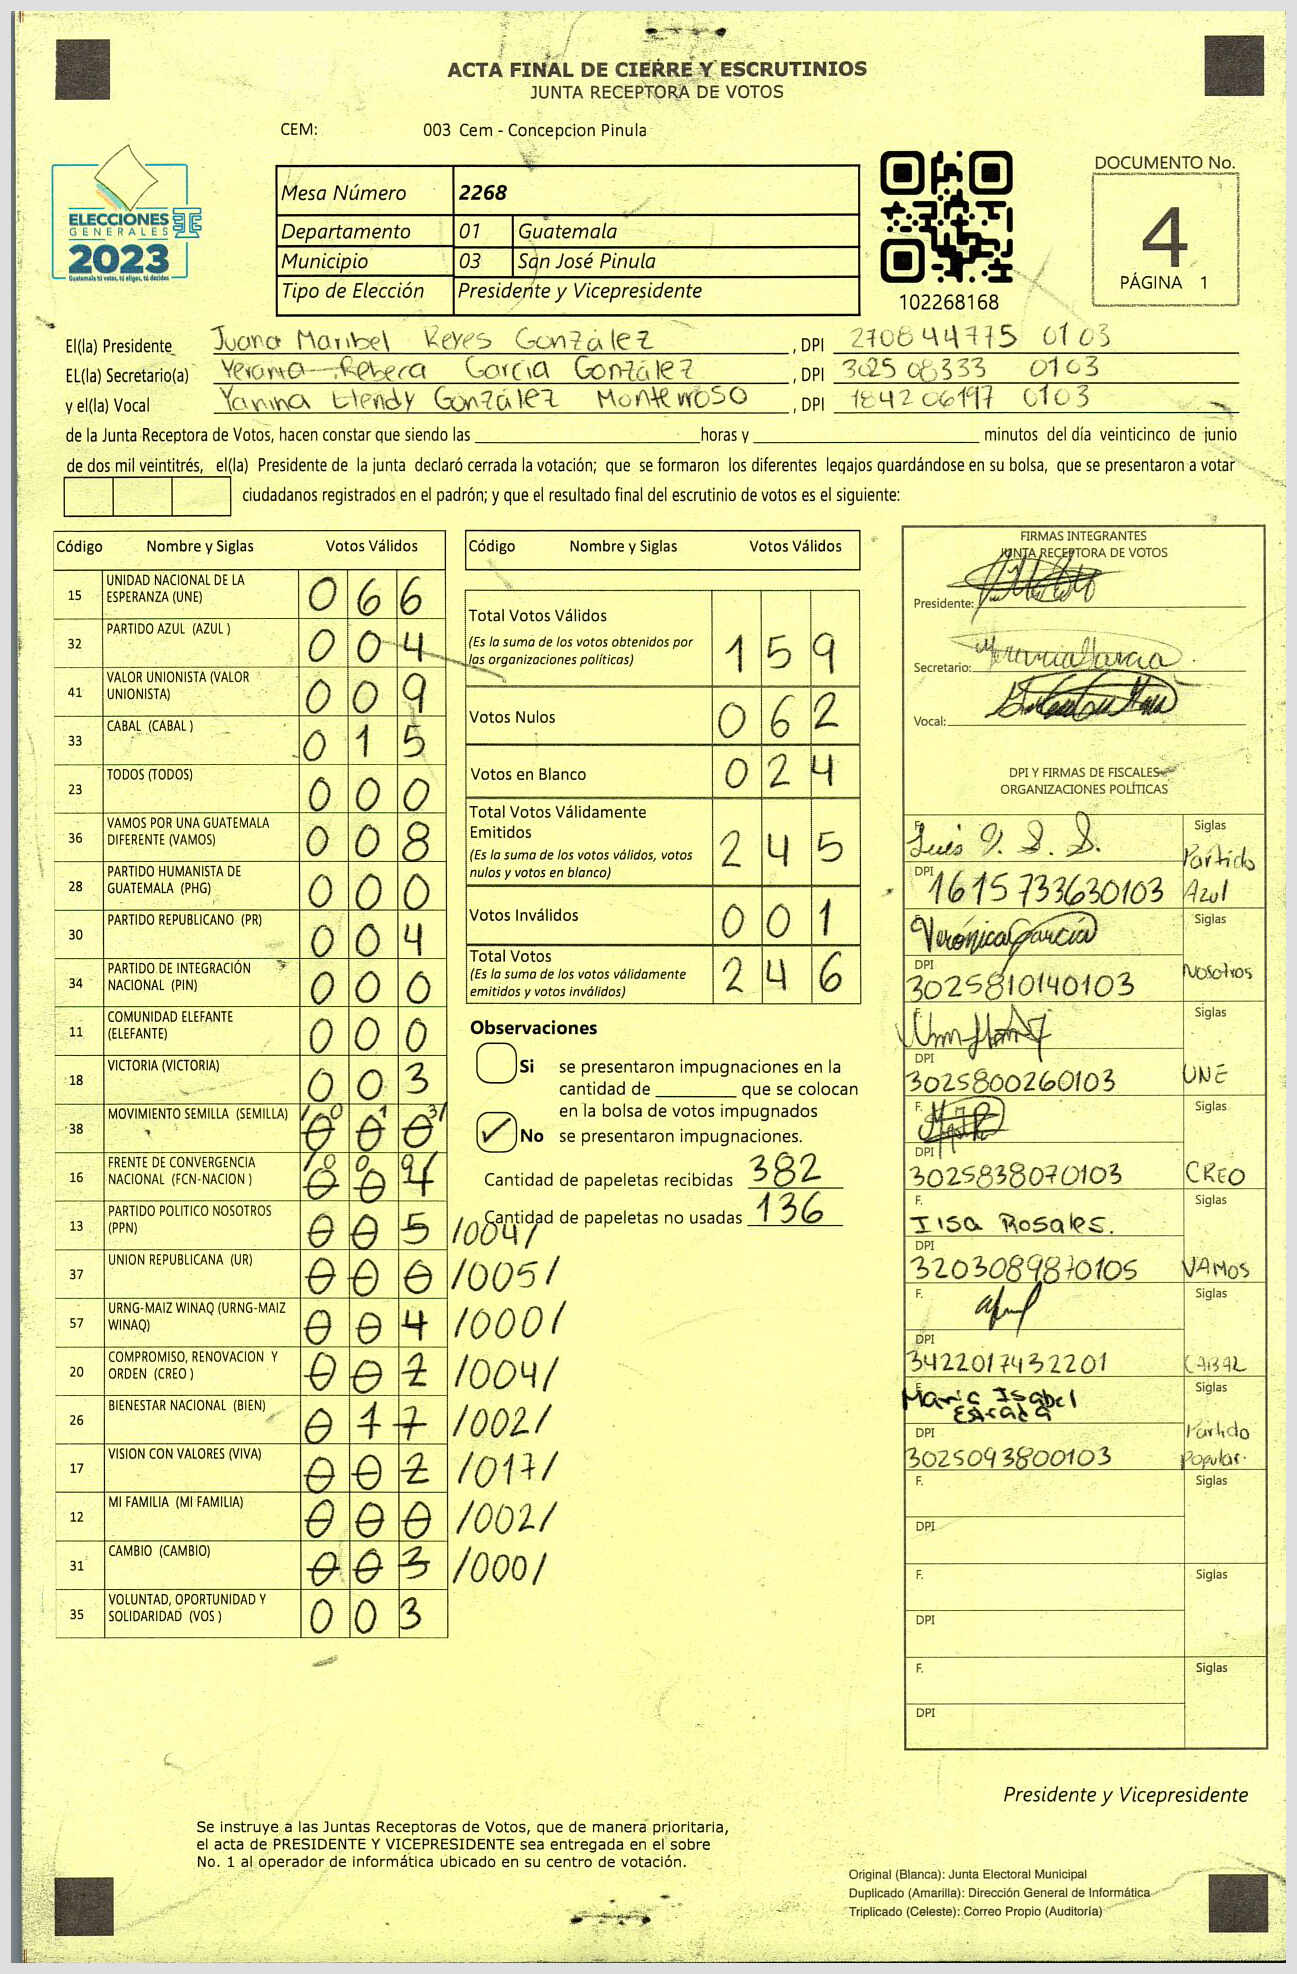 ACTA FINAL DE CIERRE Y ESCRUTINIOS
JUNTA RECEPTORA DE VOTOS
CEM: 003 Cem - Concepcion Pinula
ELECCIONES
GENERALES
2023
Guatemala tú votas, tú eliges, tú decides
Mesa Número 2268
Departamento 01 Guatemala
Municipio 03 San José Pinula
Tipo de Elección Presidente y Vicepresidente
102268168
DOCUMENTO No.
4
PÁGINA 1
El(la) Presidente Juana Maribel Reyes González , DPI 270844775 0103
EL(la) Secretario(a) Yerania Rebeca García González , DPI 302508333 0103
y el(la) Vocal Yanina Elendy González Monterroso , DPI 184206197 0103
de la Junta Receptora de Votos, hacen constar que siendo las horas y minutos del día veinticinco de junio
de dos mil veintitrés, el(la) Presidente de la junta declaró cerrada la votación; que se formaron los diferentes legajos guardándose en su bolsa, que se presentaron a votar
ciudadanos registrados en el padrón; y que el resultado final del escrutinio de votos es el siguiente:
Código Nombre y Siglas Votos Válidos
15 UNIDAD NACIONAL DE LA ESPERANZA (UNE) 066
32 PARTIDO AZUL (AZUL ) 004
41 VALOR UNIONISTA (VALOR UNIONISTA) 009
33 CABAL (CABAL ) 015
23 TODOS (TODOS) 000
36 VAMOS POR UNA GUATEMALA DIFERENTE (VAMOS) 008
28 PARTIDO HUMANISTA DE GUATEMALA (PHG) 000
30 PARTIDO REPUBLICANO (PR) 004
34 PARTIDO DE INTEGRACIÓN NACIONAL (PIN) 000
11 COMUNIDAD ELEFANTE (ELEFANTE) 000
18 VICTORIA (VICTORIA) 003
38 MOVIMIENTO SEMILLA (SEMILLA) 000 /013/
16 FRENTE DE CONVERGENCIA NACIONAL (FCN-NACION ) 004 /000/
13 PARTIDO POLITICO NOSOTROS (PPN) 005 /004/
37 UNION REPUBLICANA (UR) 000 /005/
57 URNG-MAIZ WINAQ (URNG-MAIZ WINAQ) 004 /000/
20 COMPROMISO, RENOVACION Y ORDEN (CREO ) 002 /004/
26 BIENESTAR NACIONAL (BIEN) 017 /002/
17 VISION CON VALORES (VIVA) 002 /017/
12 MI FAMILIA (MI FAMILIA) 000 /002/
31 CAMBIO (CAMBIO) 003 /000/
35 VOLUNTAD, OPORTUNIDAD Y SOLIDARIDAD (VOS ) 003
Código Nombre y Siglas Votos Válidos
Total Votos Válidos
(Es la suma de los votos obtenidos por
las organizaciones políticas)
159
Votos Nulos 062
Votos en Blanco 024
Total Votos Válidamente
Emitidos
(Es la suma de los votos válidos, votos
nulos y votos en blanco)
245
Votos Inválidos 001
Total Votos
(Es la suma de los votos válidamente
emitidos y votos inválidos)
246
Observaciones
Si se presentaron impugnaciones en la
cantidad de que se colocan
en la bolsa de votos impugnados
No se presentaron impugnaciones.
Cantidad de papeletas recibidas 382
Cantidad de papeletas no usadas 136
FIRMAS INTEGRANTES
JUNTA RECEPTORA DE VOTOS
Presidente:
Secretario:
Vocal:
DPI Y FIRMAS DE FISCALES
ORGANIZACIONES POLÍTICAS
F. Luis G. S. S. Siglas
DPI 1615733630103 Partido Azul
F. Verónica García Siglas
DPI 3025810140103 Nosotros
F. Siglas
DPI 3025800260103 UNE
F. Siglas
DPI 3025838070103 CREO
F. Ilsa Rosales. Siglas
DPI 3203089870105 VAMOS
F. Siglas
DPI 3422017432201 CABAL
F. Maria Isabel Estrada Siglas
DPI 3025093800103 Partido Popular.
F. Siglas
DPI
F. Siglas
DPI
F. Siglas
DPI
Presidente y Vicepresidente
Se instruye a las Juntas Receptoras de Votos, que de manera prioritaria,
el acta de PRESIDENTE Y VICEPRESIDENTE sea entregada en el sobre
No. 1 al operador de informática ubicado en su centro de votación.
Original (Blanca): Junta Electoral Municipal
Duplicado (Amarilla): Dirección General de Informática
Triplicado (Celeste): Correo Propio (Auditoría)